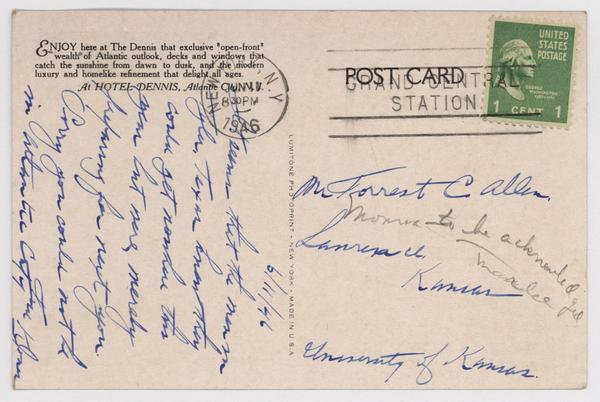 ENJOY here at The Dennis that exclusive "open-front"
wealth of Atlantic outlook, decks and windows that
catch the sunshine from dawn to dusk, and the modern
luxury and homelike refinement that delight all ages.
At HOTEL DENNIS, Atlantic City, N.J.
NEW YORK, N.Y.
JUN 11
830PM
1946
POST CARD
GRAND CENTRAL
STATION
UNITED
STATES
POSTAGE
GEORGE
WASHINGTON
1 CENT 1
6/11/46
seems that the
Tyler, Texas
could get nowhere this
year but were merely
preparing for next year.
Sorry you could not be
in Atlantic City.
LUMITONE PHOTOPRINT • NEW YORK • MADE IN U.S.A.
Mr. Forrest C Allen.
Lawrence.
Kansas
University of Kansas.
to be acknowledged